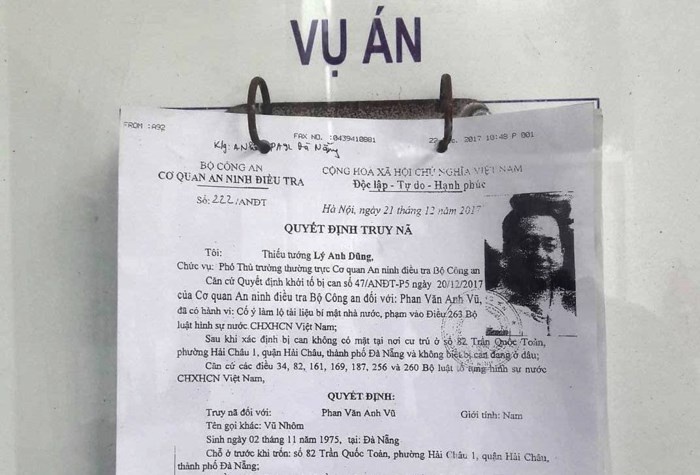 VỤ ÁN
FROM :A92 FAX NO. :0439410881 2017 10:48 P 001
K/g: PA92 Đà Nẵng
BỘ CÔNG AN CỘNG HOÀ XÃ HỘI CHỦ NGHĨA VIỆT NAM
CƠ QUAN AN NINH ĐIỀU TRA Độc lập - Tự do - Hạnh phúc
Số: 222/ANĐT Hà Nội, ngày 21 tháng 12 năm 2017
QUYẾT ĐỊNH TRUY NÃ
Tôi: Thiếu tướng Lý Anh Dũng,
Chức vụ: Phó Thủ trưởng thường trực Cơ quan An ninh điều tra Bộ Công an
Căn cứ Quyết định khởi tố bị can số 47/ANĐT-P5 ngày 20/12/2017
của Cơ quan An ninh điều tra Bộ Công an đối với: Phan Văn Anh Vũ,
đã có hành vi: Cố ý làm lộ tài liệu bí mật nhà nước, phạm vào Điều 263 Bộ
luật hình sự nước CHXHCN Việt Nam;
Sau khi xác định bị can không có mặt tại nơi cư trú ở số 82 Trần Quốc Toản,
phường Hải Châu 1, quận Hải Châu, thành phố Đà Nẵng và không biết bị can đang ở đâu;
Căn cứ các điều 34, 82, 161, 169, 187, 256 và 260 Bộ luật tố tụng hình sự nước
CHXHCN Việt Nam,
QUYẾT ĐỊNH:
Truy nã đối với: Phan Văn Anh Vũ Giới tính: Nam
Tên gọi khác: Vũ Nhôm
Sinh ngày 02 tháng 11 năm 1975, tại: Đà Nẵng
Chỗ ở trước khi trốn: số 82 Trần Quốc Toản, phường Hải Châu 1, quận Hải Châu,
thành phố Đà Nẵng;